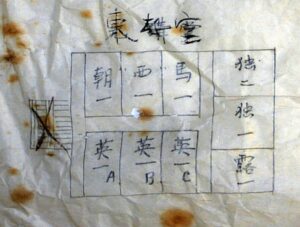 朝一
西一
馬一
独二
独一
英一A
英一B
英一C
露一